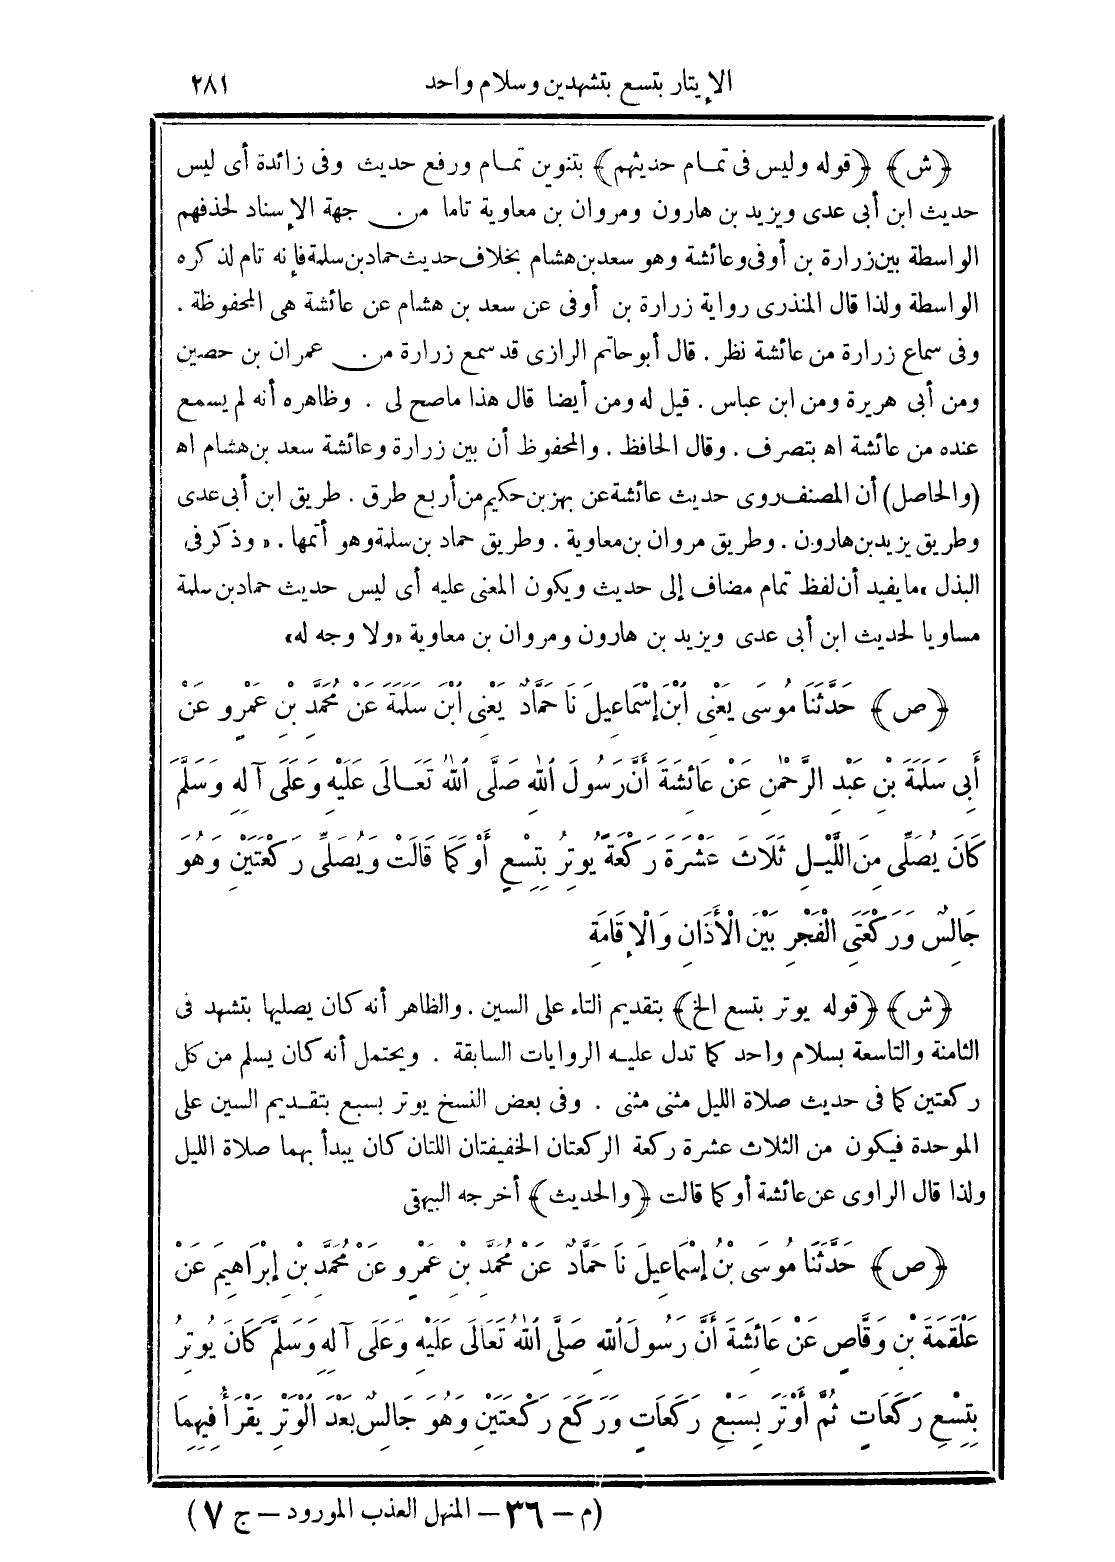 الإيتار بتسع بتشهدين وسلام واحد ٢٨١
﴿ش﴾ ﴿قوله وليس فى تمام حديثهم﴾ بتنوين تمام ورفع حديث وفى زائدة أى ليس
حديث ابن أبى عدى ويزيد بن هارون ومروان بن معاوية تاما من جهة الإسناد لحذفهم
الواسطة بين زرارة بن أوفى وعائشة وهو سعد بن هشام بخلاف حديث حماد بن سلمة فإنه تام لذكره
الواسطة ولذا قال المنذرى رواية زرارة بن أوفى عن سعد بن هشام عن عائشة هى المحفوظة .
وفى سماع زرارة من عائشة نظر . قال أبو حاتم الرازى قد سمع زرارة من عمران بن حصين
ومن أبى هريرة ومن ابن عباس . قيل له ومن أيضا قال هذا ماصح لى . وظاهره أنه لم يسمع
عنده من عائشة اه بتصرف . وقال الحافظ . والمحفوظ أن بين زرارة وعائشة سعد بن هشام اه
(والحاصل) أن المصنف روى حديث عائشة عن بهز بن حكيم من أربع طرق . طريق ابن أبى عدى
وطريق يزيد بن هارون . وطريق مروان بن معاوية . وطريق حماد بن سلمة وهو أتمها . «وذكر فى
البذل» مايفيد أن لفظ تمام مضاف إلى حديث ويكون المعنى عليه أى ليس حديث حماد بن سلمة
مساويا لحديث ابن أبى عدى ويزيد بن هارون ومروان بن معاوية «ولا وجه له»
﴿ص﴾ حَدَّثَنَا مُوسَى يَعْنِى ابْنَ إِسْمَاعِيلَ نَا حَمَّادٌ يَعْنِى ابْنَ سَلَمَةَ عَنْ مُحَمَّدِ بْنِ عَمْرٍو عَنْ
أَبِى سَلَمَةَ بْنِ عَبْدِ الرَّحْمٰنِ عَنْ عَائِشَةَ أَنَّ رَسُولَ اللهِ صَلَّى اللهُ تَعَالَى عَلَيْهِ وَعَلَى آلِهِ وَسَلَّمَ
كَانَ يُصَلِّى مِنَ اللَّيْلِ ثَلَاثَ عَشْرَةَ رَكْعَةً يُوتِرُ بِتِسْعٍ أَوْ كَمَا قَالَتْ وَيُصَلِّى رَكْعَتَيْنِ وَهُوَ
جَالِسٌ وَرَكْعَتَىِ الْفَجْرِ بَيْنَ الْأَذَانِ وَالْإِقَامَةِ
﴿ش﴾ ﴿قوله يوتر بتسع الخ﴾ بتقديم التاء على السين . والظاهر أنه كان يصليها بتشهد فى
الثامنة والتاسعة بسلام واحد كما تدل عليه الروايات السابقة . ويحتمل أنه كان يسلم من كل
ركعتين كما فى حديث صلاة الليل مثنى مثنى . وفى بعض النسخ يوتر بسبع بتقديم السين على
الموحدة فيكون من الثلاث عشرة ركعة الركعتان الخفيفتان اللتان كان يبدأ بهما صلاة الليل
ولذا قال الراوى عن عائشة أو كما قالت ﴿والحديث﴾ أخرجه البيهقى
﴿ص﴾ حَدَّثَنَا مُوسَى بْنُ إِسْمَاعِيلَ نَا حَمَّادٌ عَنْ مُحَمَّدِ بْنِ عَمْرٍو عَنْ مُحَمَّدِ بْنِ إِبْرَاهِيمَ عَنْ
عَلْقَمَةَ بْنِ وَقَّاصٍ عَنْ عَائِشَةَ أَنَّ رَسُولَ اللهِ صَلَّى اللهُ تَعَالَى عَلَيْهِ وَعَلَى آلِهِ وَسَلَّمَ كَانَ يُوتِرُ
بِتِسْعِ رَكَعَاتٍ ثُمَّ أَوْتَرَ بِسَبْعِ رَكَعَاتٍ وَرَكَعَ رَكْعَتَيْنِ وَهُوَ جَالِسٌ بَعْدَ الْوَتْرِ يَقْرَأُ فِيهِمَا
(م – ٣٦ – المنهل العذب المورود – ج ٧)